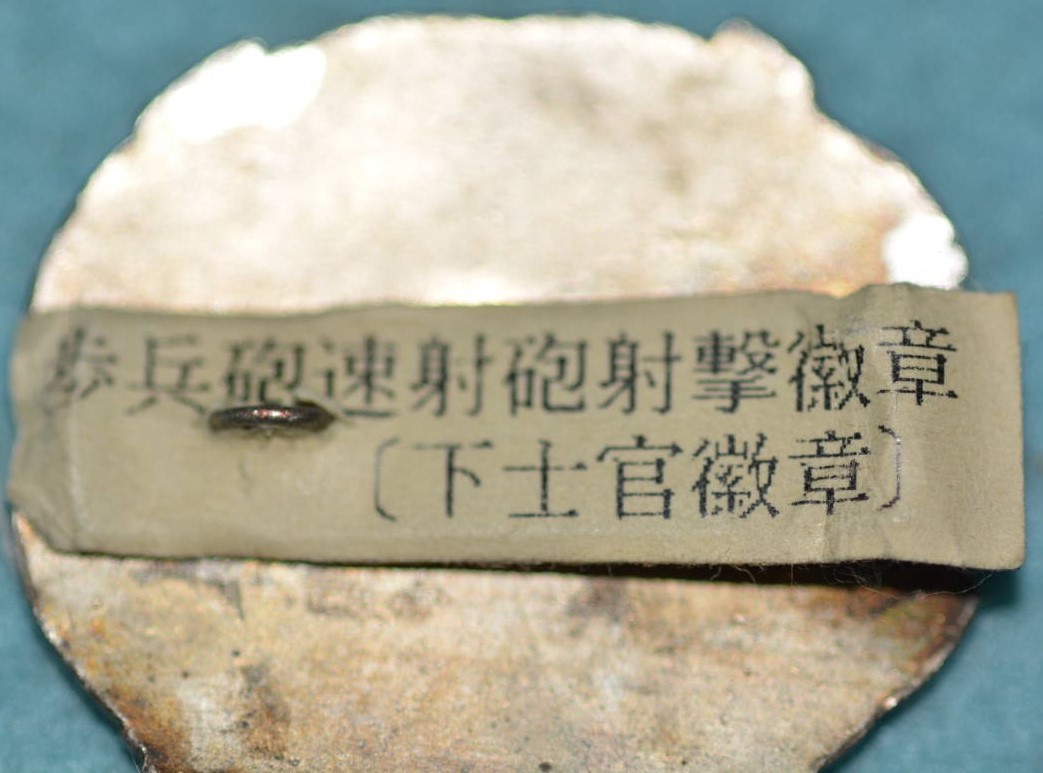 歩兵砲速射砲射撃徽章
〔下士官徽章〕